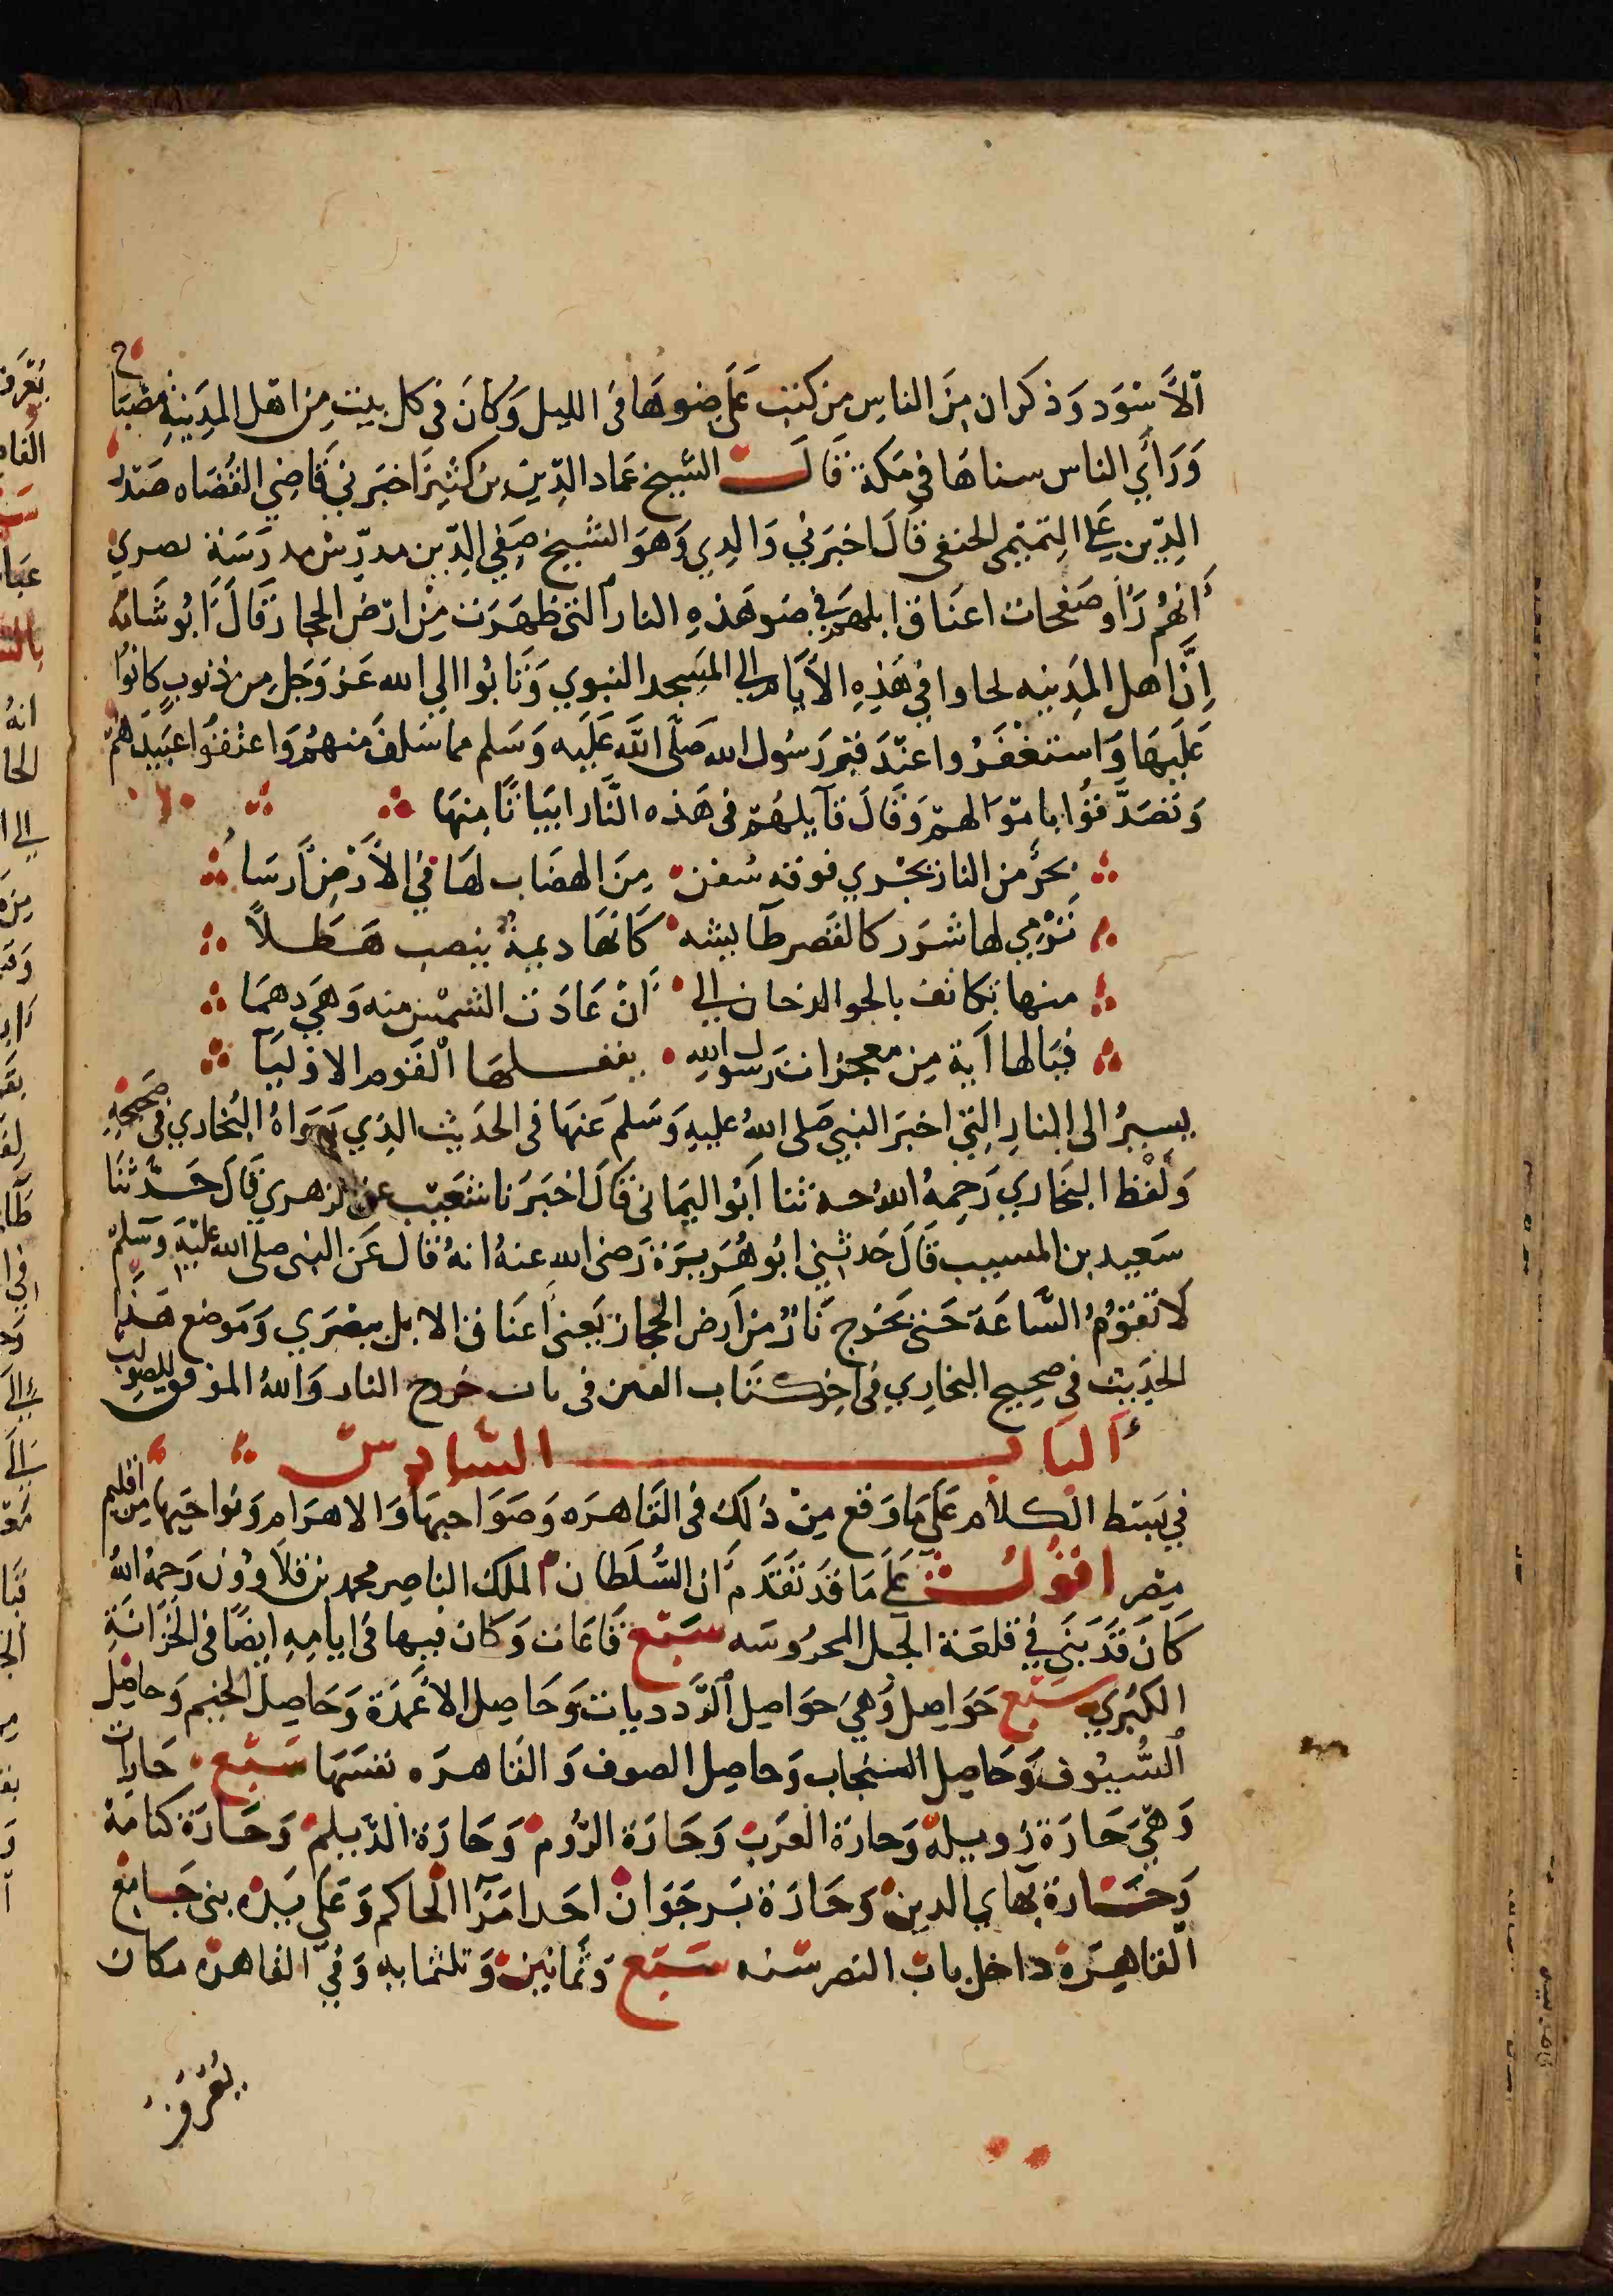 الأسْوَد وَذكران مِنَ الناسِ من كتب عَلى ضوهَا فى الليل وَكانَ فى كل بيت مِن اهل المدِينةِ مصْبَاح
وَرَأي الناس سناهَا في مَكة قَالَت الشيخ عَماد الدِّين بن كثيْر اخبَرني قَاضِي القُضَاه صَدْر
الدِّين عَلي التميمي الحنفى قَالَ اخبَرني وَالِدِي وَهوَ الشيخ صَفِي الدِّين مدرّس مدرَسَة بصري
أنهُم رَأو صَفحات اعنَاق ابلهم فِي ضو هَذِهِ النار التى ظهَرَت مِنْ ارْض الحجاز قَالَ ابُو شَامَه
اِنَّ اهل المدِينه لجاوا في هَذِهِ الأيَّام الي المسَجد النبوي وَتَابُوا الي الله عَز وَجَل من ذنوبٍ كانوُا
عَلَيهَا وَاستغْفَرُوا عنْدَ قبْر رَسُول الله صَلّى الله عَلَيه وَسَلم مما سَلفَ منهُمْ وَاعتقُوا عَبَيدَهُمْ
وَتصَدَّقوُا بامْوَالهمْ وَقَالَ قآيلهُمْ فى هَذه النَّار ابيَاتًا مِنهَا
بحرٌ من النار تجْري فوقه سُفن مِنَ الهضَاب لهَا فيْ الأرْضِ ارسَا
تَرْمِي لها شرَر كالقَصر طَآيشه كَانهَا ديمةٌ ينصب هَطلاً
منها تكاثف بالجو الدخان الي أنْ عَادَت الشمْس منه وَهيَ دهمَا
فيَالها آية مِن معجزات رَسُول الله يعقلهَا القوم الاوليَآ
يسيرُ الى النارِ التِى اخبَرَ النبي صَلى اللهُ عليهِ وَسَلمَ عَنهَا فى الحَديث الذِي رَوَاهُ البُخاري فى صَحيحِهِ
وَلفظ البخَاري رَحِمهُ اللهُ حدثنا أبُوا اليمَانى قَالَ اخبَرَنا شعَيْب عن الزهري قَالَ حَدَّثنَا
سَعيد بن المسيب قَالَ حَدثنِي ابُو هُرَيرَة رَضى الله عنهُ انهُ قال عَن النبى صلى الله عليْهِ وَسَلم
لا تقوُمُ السَّاعَة حَتى تخرُج نَارٌ مِن أرض الحجاز يَعنى أعنَاق الابل ببصْري وَمَوضع هَذَا
الحَدِيث فى صحِيح البخَارِي فى آخر كتَاب الفتن فى باب خرُوج النار وَاللهُ الموَفق للصوَاب
ألبَاب السَّادِسْ
في بَسْط الكلام عَلى مَا وَقع مِنْ ذَلكَ فى القَاهرَه وَضوَاحيهَا وَالاهرَام وَنوَاحيهَا مِن اقليم
مصْر اقوُلُ عَلى مَا قدْ تقَدَم أن السُّلطَان الملك الناصِر محمد بن قلاوون رَحمهُ اللهُ
كَانَ قَدْ بَنَي فِي قلعَة الجَبل المحرُوسَه سَبْع قَاعَات وَكانَ فيهَا في أيامِهِ ايضًا فى الخزَانَةِ
الكبْري سَبْع حَوَاصِل وَهيَ حوَاصِل الزَّرديات وَحَاصِل الأعْمدَة وَحَاصِل الخيم وَحاصِل
السُّيُوف وَحَاصِل السنجاب وَحاصِل الصوف وَالقاهرَه نفسَهَا سَبْع حَارَات
وَهيَ حَارَة زويله وَحارة العرَب وَحَارَة الرُّوم وَحَارَة الدّيلم وَحَارَة كتامَة
وَحَارة بهَاي الدين وَحَارَة بَرجَوَان احَد امَرَآ الحاكم وَعَلى يَدْه بنى جَامِع
القاهِرَة داخل باب النصر سَنه سَبْع وَثمَانين وَثلثمايه وَفي القاهرَه مكَان
يعْرَف